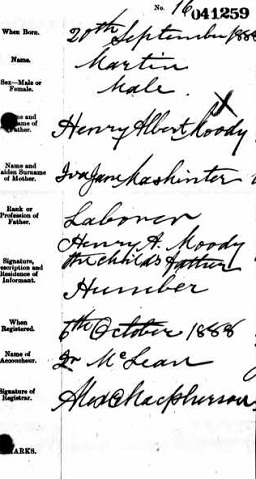 No. 16 041259
When Born. 20th September 1888
Name. Martin
Sex—Male or Female. Male.
me and Surname of Father. Henry Albert Moody
Name and aiden Surname of Mother. Iva Jane Mashinter
Rank or Profession of Father. Laborer
Signature, escription and Residence of Informant. Henry A. Moody
the childs father
Humber
When Registered. 6th October 1888
Name of Accoucheur. Dr McLean
Signature of Registrar. Alex Macpherson
ARKS.